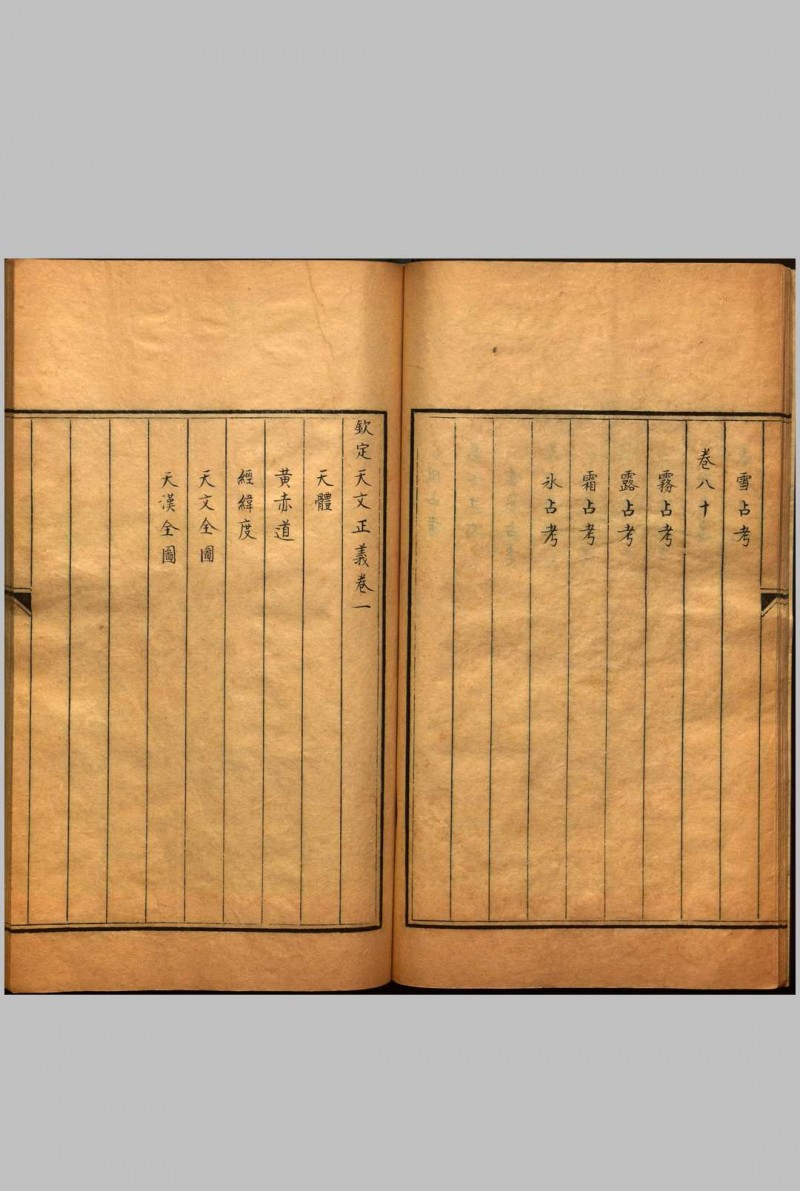 雪占考
卷八十
霧占考
露占考
霜占考
氷占考
欽定天文正義卷一
天體
黃赤道
經緯度
天文全圖
天漢全圖